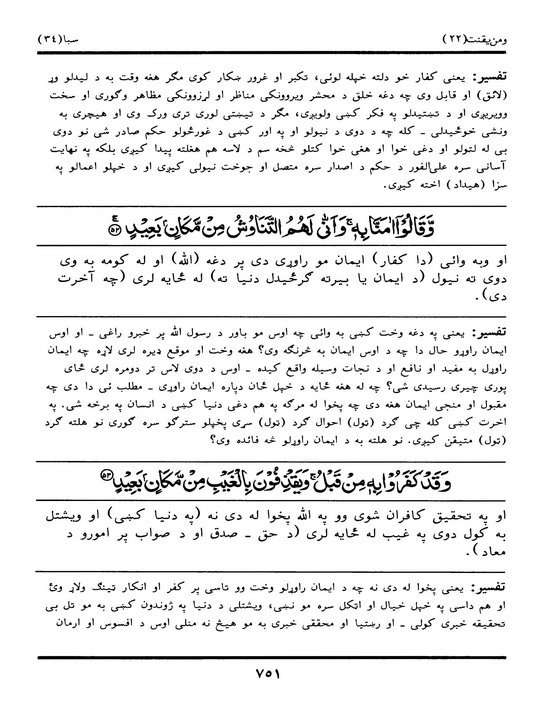 ومن يقنت(٢٢)
سبا(٣٤)
تفسير: يعنی کفار خو دلته خپله لوئی، تکبر او غرور ښکار کوی مگر هغه وقت به د ليدلو وړ
(لائق) او قابل وی چه دغه خلق د محشر ويروونکی مناظر او لړزوونکی مظاهر وگوری او سخت
وويريږی او د تښتيدلو په فکر کښی ولويږی، مگر د تيښتی لوری تری ورک وی او هيچری به
ونشی خوځيدلی ـ کله چه د دوی د نيولو او په اور کښی د غورځولو حکم صادر شی نو دوی
بی له لتولو او دغی خوا او هغی خوا کتلو څخه سم د لاسه هم هغلته پيدا کيږی بلکه په نهايت
آسانی سره علی‌الفور د حکم د اصدار سره متصل او جوخت نيولی کيږی او د خپلو اعمالو په
سزا (هيداد) اخته کيږی.
وَّقَالُوْٓا اٰمَنَّا بِهٖ ۚ وَاَنّٰى لَهُمُ التَّنَاوُشُ مِنْ مَّكَانٍۭ بَعِيْدٍ ۝٥٢
او وبه وائی (دا کفار) ايمان مو راوړی دی پر دغه (الله) او له کومه به وی
دوی ته نيول (د ايمان يا بيرته گرځيدل دنيا ته) له ځايه لری (چه آخرت
دی).
تفسير: يعنی په دغه وخت کښی به وائی چه اوس مو باور د رسول الله پر خبرو راغی ـ او اوس
ايمان راوړو حال دا چه د اوس ايمان به څرنگه وی؟ هغه وخت او موقع ډيره لری لاړه چه ايمان
راوړل به مفيد او نافع او د نجات وسيله واقع کيده ـ اوس د دوی لاس تر دومره لری ځای
پوری چيری رسيدی شی؟ چه له هغه ځايه د خپل ځان دپاره ايمان راوړی ـ مطلب ئی دا دی چه
مقبول او منجی ايمان هغه دی چه پخوا له مرگه په هم دغی دنيا کښی د انسان په برخه شی. په
اخرت کښی کله چی گرد (تول) احوال گرد (تول) سړی پخپلو سترگو سره گوری نو هلته گرد
(تول) متيقن کيږی. نو هلته به د ايمان راوړلو څه فائده وی؟
وَقَدْ كَفَرُوْا بِهٖ مِنْ قَبْلُ ۚ وَيَقْذِفُوْنَ بِالْغَيْبِ مِنْ مَّكَانٍۭ بَعِيْدٍ ۝٥٣
او په تحقيق کافران شوی وو په الله پخوا له دی نه (په دنيا کښی) او ويشتل
به کول دوی په غيب له ځايه لری (د حق ـ صدق او د صواب پر امورو د
معاد).
تفسير: يعنی پخوا له دی نه چه د ايمان راوړلو وخت وو تاسی پر کفر او انکار تينگ ولاړ وئ
او هم داسی په خپل خيال او اټکل سره مو نښی، ويشتلی د دنيا په ژوندون کښی به مو تل بی
تحقيقه خبری کولی ـ او رښتيا او محققی خبری به مو هيڅ نه منلی اوس د افسوس او ارمان
٧٥١